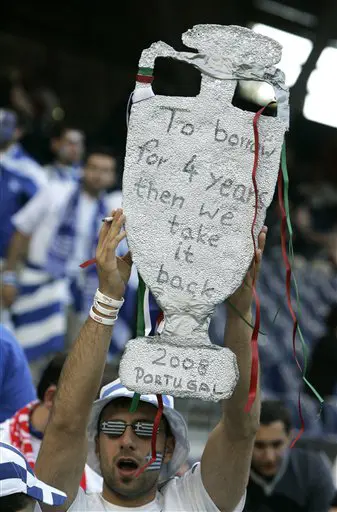 To borrow
for 4 years
then we
take
it
back
2008
PORTUGAL